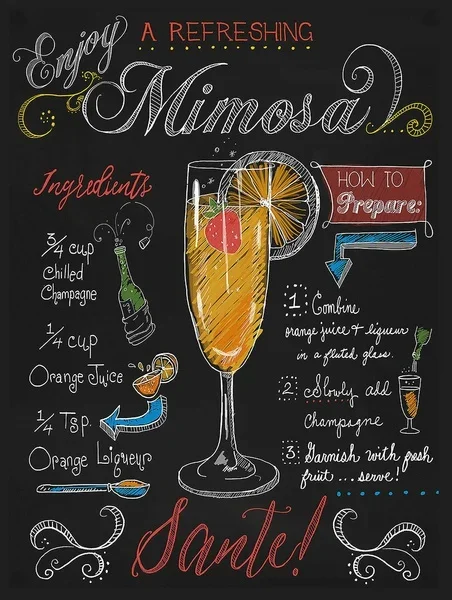 Enjoy
A REFRESHING
Mimosa
Ingredients
3/4 cup
Chilled
Champagne
1/4 cup
Orange Juice
1/4 Tsp.
Orange Liqueur
HOW TO
Prepare:
1. Combine
orange juice & liqueur
in a fluted glass.
2. Slowly add
Champagne
3. Garnish with fresh
fruit ... serve!
Sante!